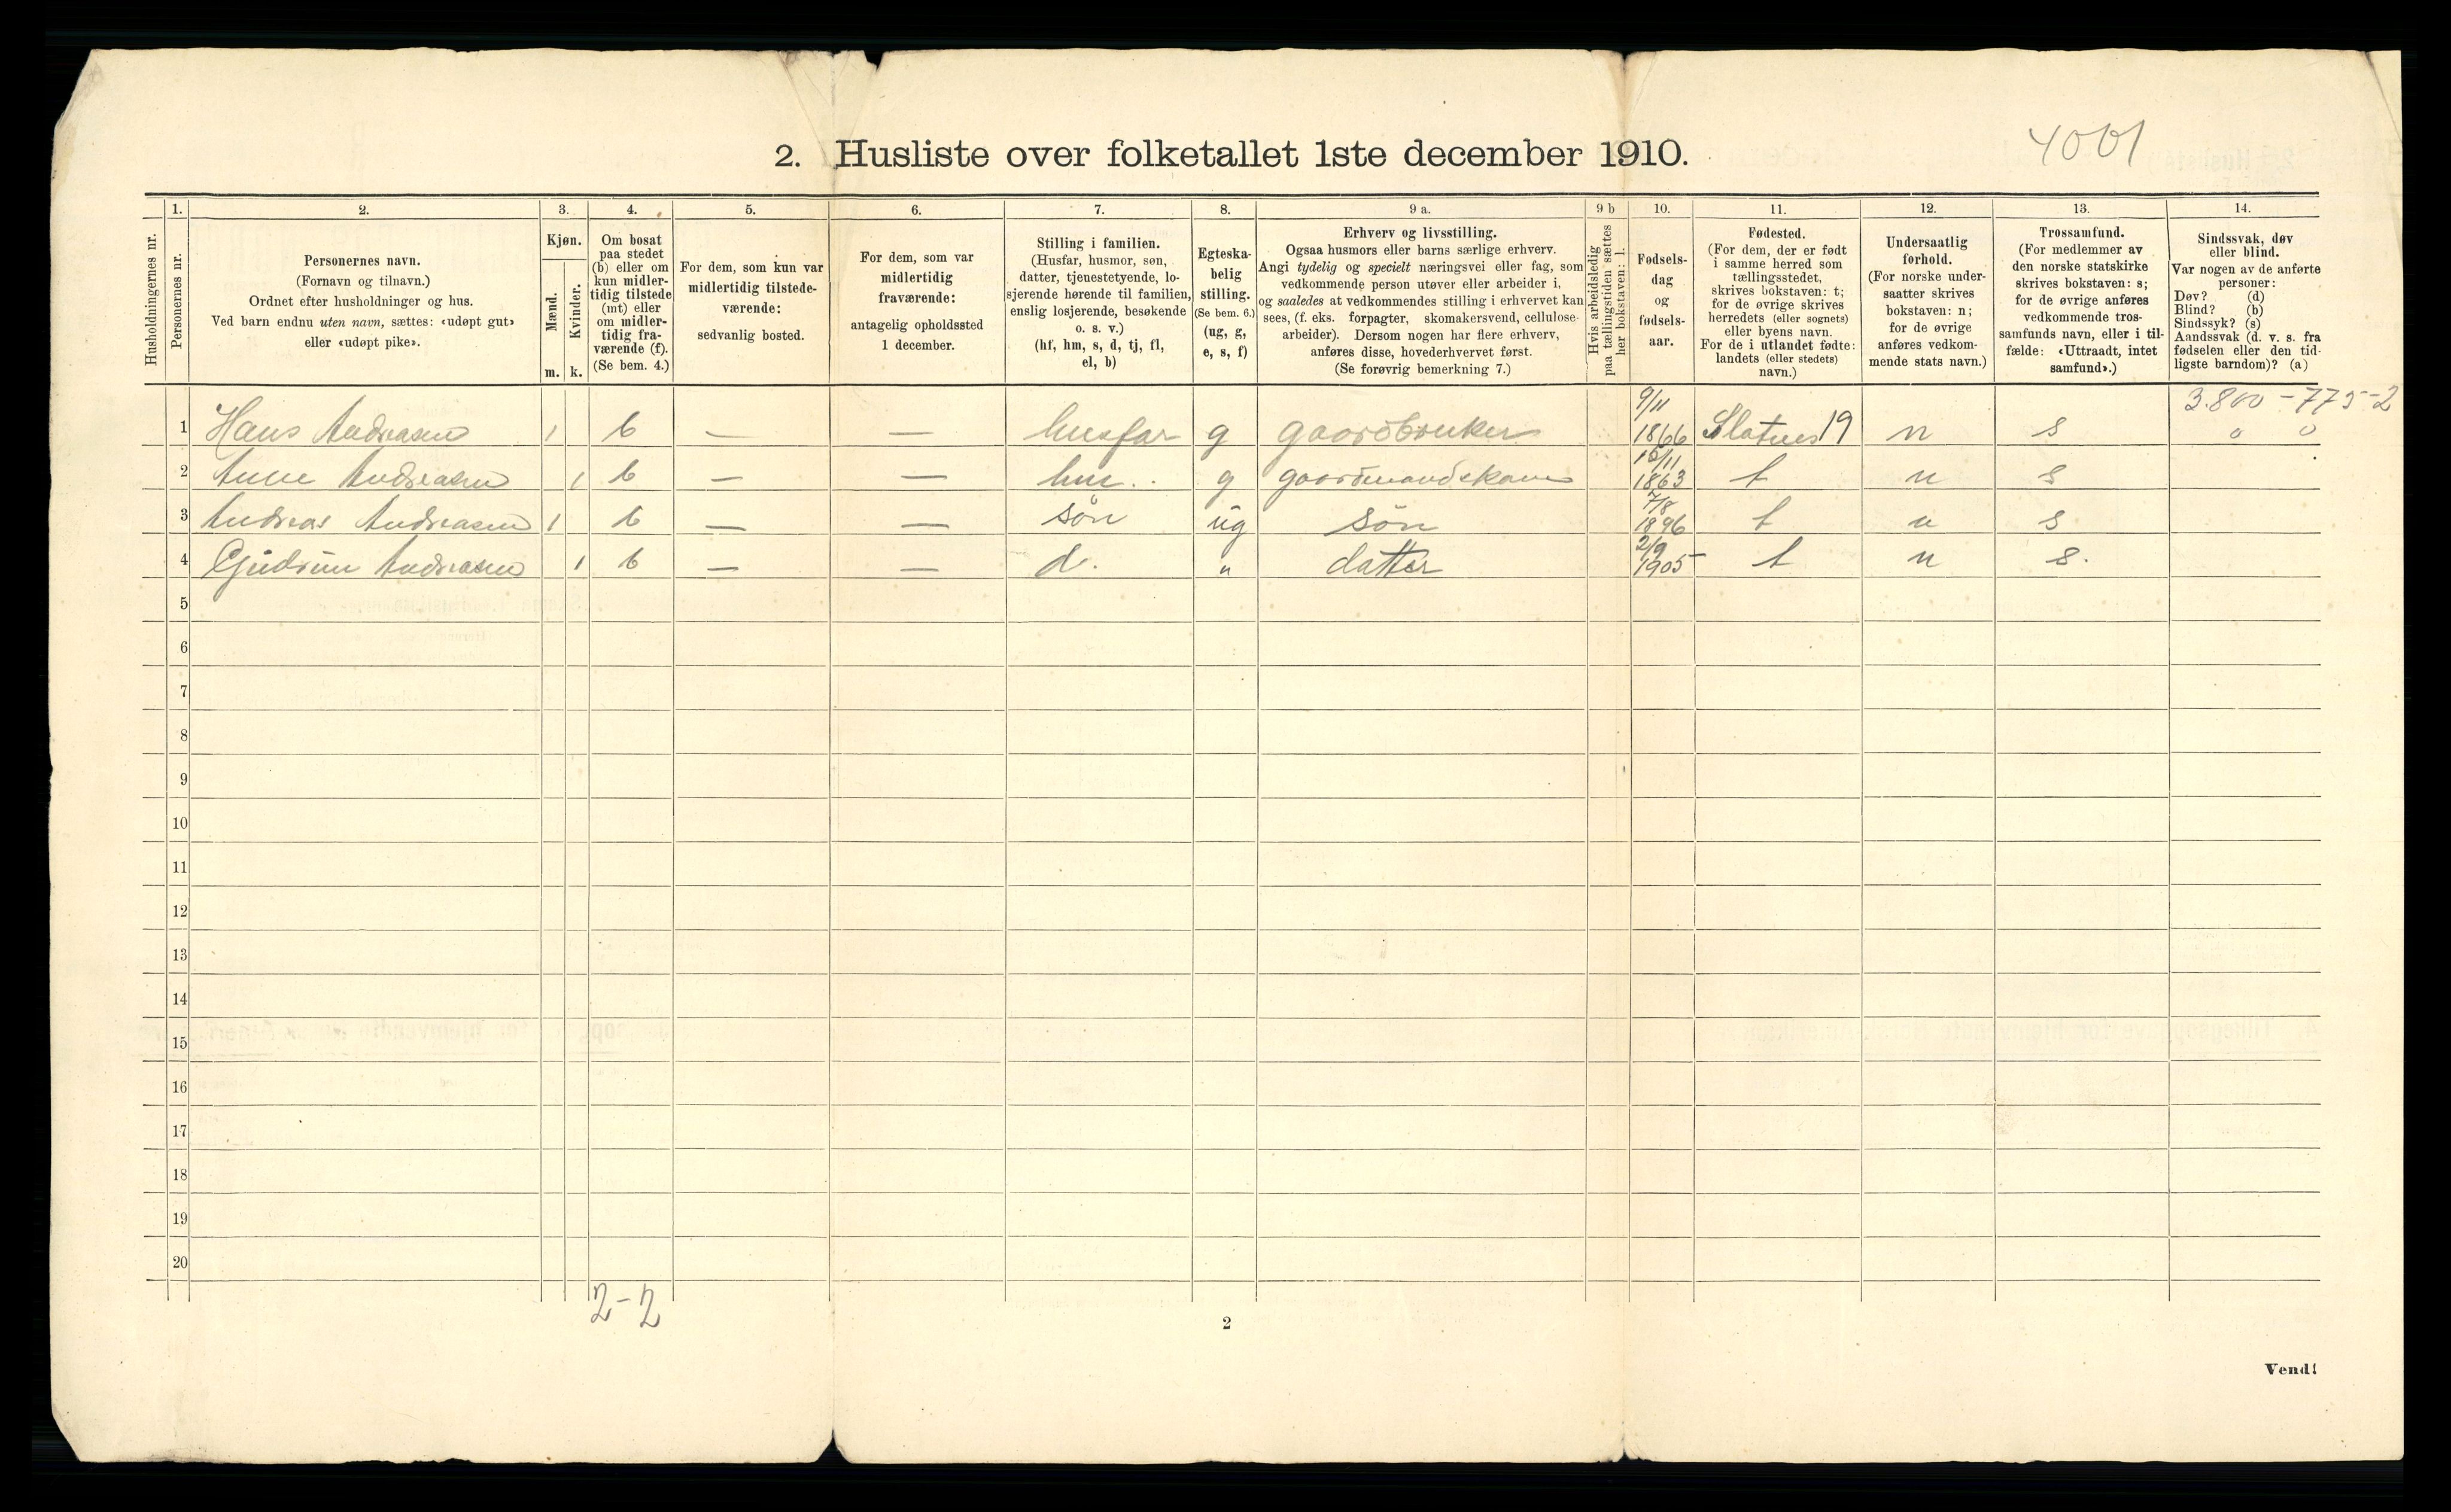 4001
2. Husliste over folketallet 1ste december 1910.
Husholdningernes nr.
1.
Personernes nr.
2.
Personernes navn.
(Fornavn og tilnavn.)
Ordnet efter husholdninger og hus.
Ved barn endnu uten navn, sættes: «udøpt gut»
eller «udøpt pike».
3.
Kjøn.
Mænd.
Kvinder.
m. k.
4.
Om bosat
paa stedet
(b) eller om
kun midler-
tidig tilstede
(mt) eller
om midler-
tidig fra-
værende (f).
(Se bem. 4.)
5.
For dem, som kun var
midlertidig tilstede-
værende:
sedvanlig bosted.
6.
For dem, som var
midlertidig
fraværende:
antagelig opholdssted
1 december.
7.
Stilling i familien.
(Husfar, husmor, søn,
datter, tjenestetyende, lo-
sjerende hørende til familien,
enslig losjerende, besøkende
o. s. v.)
(hf, hm, s, d, tj, fl,
el, b)
8.
Egteska-
belig
stilling.
(Se bem. 6.)
(ug, g,
e, s, f)
9 a.
Erhverv og livsstilling.
Ogsaa husmors eller barns særlige erhverv.
Angi tydelig og specielt næringsvei eller fag, som
vedkommende person utøver eller arbeider i,
og saaledes at vedkommendes stilling i erhvervet kan
sees, (f. eks. forpagter, skomakersvend, cellulose-
arbeider). Dersom nogen har flere erhverv,
anføres disse, hovederhvervet først.
(Se forøvrig bemerkning 7.)
9 b
Hvis arbeidsledig
paa tællingstiden sættes
her bokstaven: l.
10.
Fødsels-
dag
og
fødsels-
aar.
11.
Fødested.
(For dem, der er født
i samme herred som
tællingsstedet,
skrives bokstaven: t;
for de øvrige skrives
herredets (eller sognets)
eller byens navn.
For de i utlandet fødte:
landets (eller stedets)
navn.)
12.
Undersaatlig
forhold.
(For norske under-
saatter skrives
bokstaven: n;
for de øvrige
anføres vedkom-
mende stats navn.)
13.
Trossamfund.
(For medlemmer av
den norske statskirke
skrives bokstaven: s;
for de øvrige anføres
vedkommende tros-
samfunds navn, eller i til-
fælde: «Uttraadt, intet
samfund».)
14.
Sindssvak, døv
eller blind.
Var nogen av de anførte
personer:
Døv? (d)
Blind? (b)
Sindssyk? (s)
Aandssvak (d. v. s. fra
fødselen eller den tid-
ligste barndom)? (a)
3.800 – 775 – 2
1 Hans Andreasen 1 b — — husfar g gaardbruker 9/11 1866 19 n s o o
2 Anne Andreasen 1 b — — hm.. g gaardmandskone 15/11 1863 t n s
3 Andreas Andreasen 1 b — — søn ug søn 7/8 1896 t n s
4 Gudrun Andreasen 1 b — — d. " datter 2/9 1905 t n s.
5
6
7
8
9
10
11
12
13
14
15
16
17
18
19
20
2-2
2
Vend!